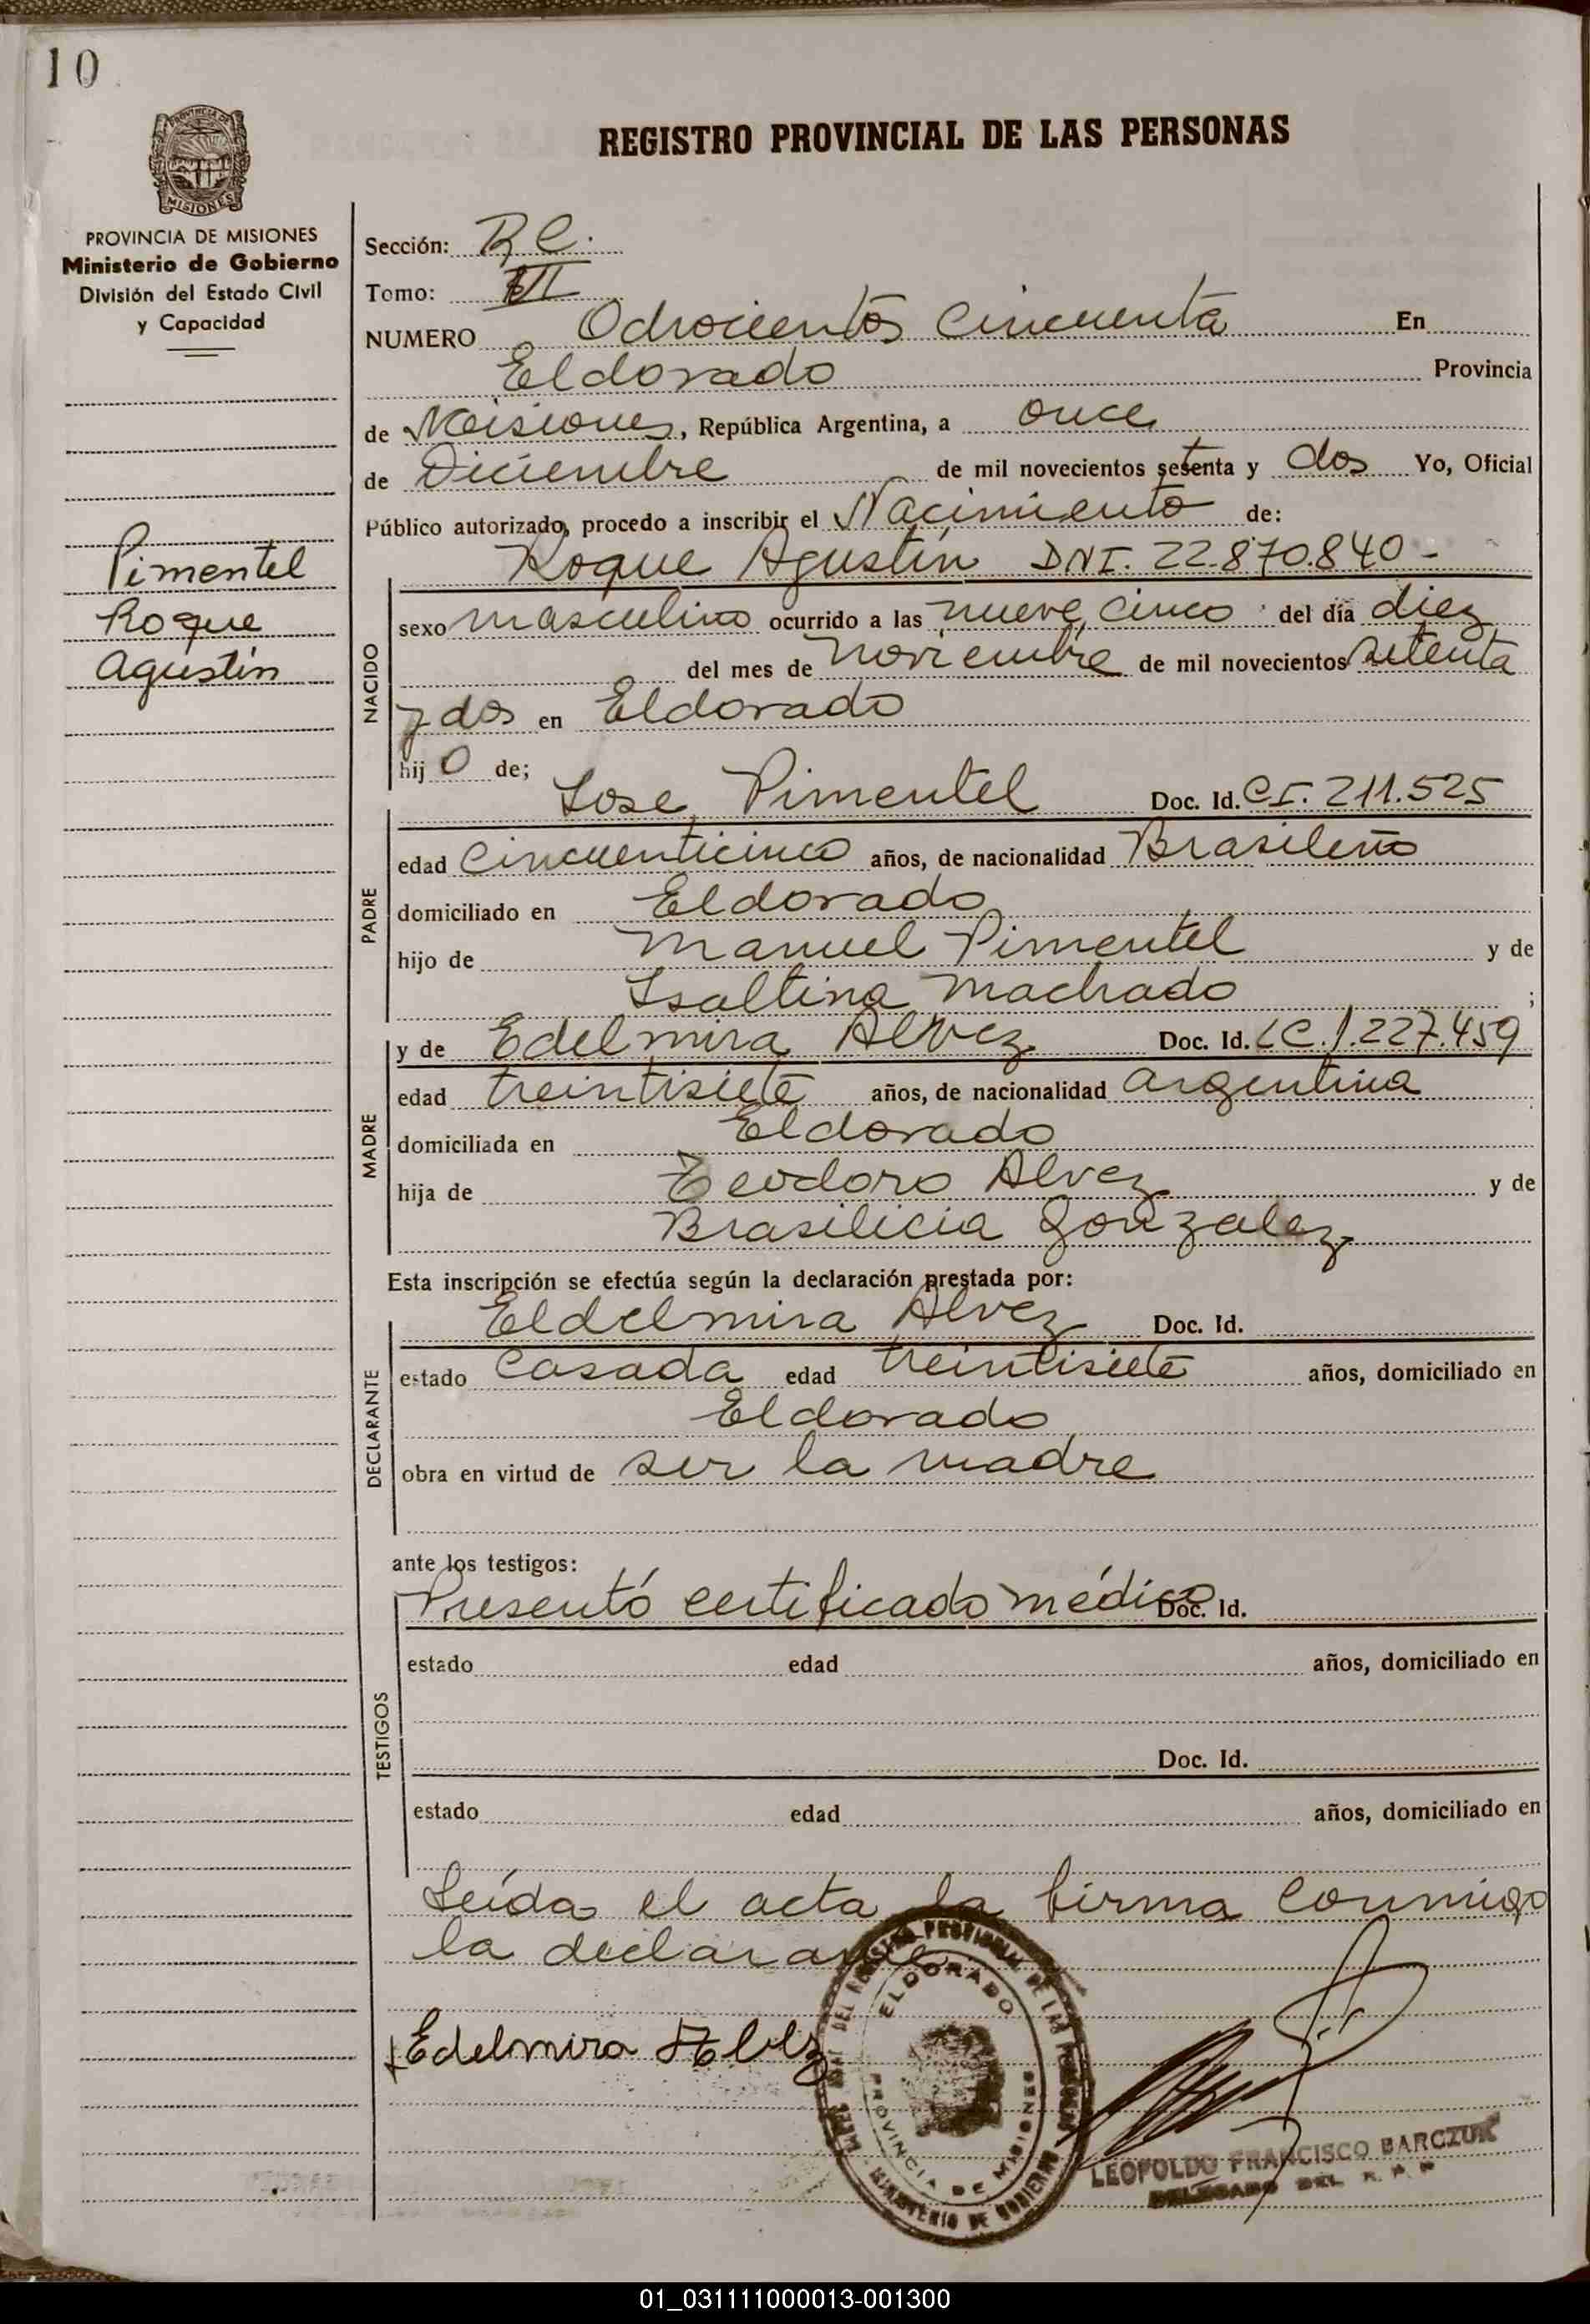 10
PROVINCIA DE MISIONES
Ministerio de Gobierno
División del Estado Civil
y Capacidad
Pimentel
Roque
Agustín
REGISTRO PROVINCIAL DE LAS PERSONAS
Sección: R C.
Tomo: VI
NUMERO Ochocientos Cincuenta En
Eldorado Provincia
de Misiones, República Argentina, a once
de Diciembre de mil novecientos setenta y dos Yo, Oficial
Público autorizado, procedo a inscribir el Nacimiento de:
Roque Agustín DNI. 22.870.840 -
NACIDO
sexo masculino ocurrido a las nueve, cinco del día diez
del mes de noviembre de mil novecientos setenta
y dos en Eldorado
hijo de;
PADRE
Jose Pimentel Doc. Id. CI. 211.525
edad Cincuenticinco años, de nacionalidad Brasileño
domiciliado en Eldorado
hijo de Manuel Pimentel y de
Isaltina Machado ;
MADRE
y de Edelmira Alvez Doc. Id. LC. 1.227.459
edad treintisiete años, de nacionalidad argentina
domiciliada en Eldorado
hija de Teodoro Alvez y de
Brasilicia Gonzalez
Esta inscripción se efectúa según la declaración prestada por:
DECLARANTE
Eldelmira Alvez Doc. Id.
estado Casada edad treintisiete años, domiciliado en
Eldorado
obra en virtud de ser la madre
ante los testigos:
TESTIGOS
Presentó certificado médico Doc. Id.
estado edad años, domiciliado en
Doc. Id.
estado edad años, domiciliado en
Leída el acta la firma conmigo
la declarante
Edelmira Alvez
ELDORADO
PROVINCIA DE MISIONES
MINISTERIO DE GOBIERNO
LEOPOLDO FRANCISCO BARCZUK
DELEGADO DEL R. P. P.
01_031111000013-001300